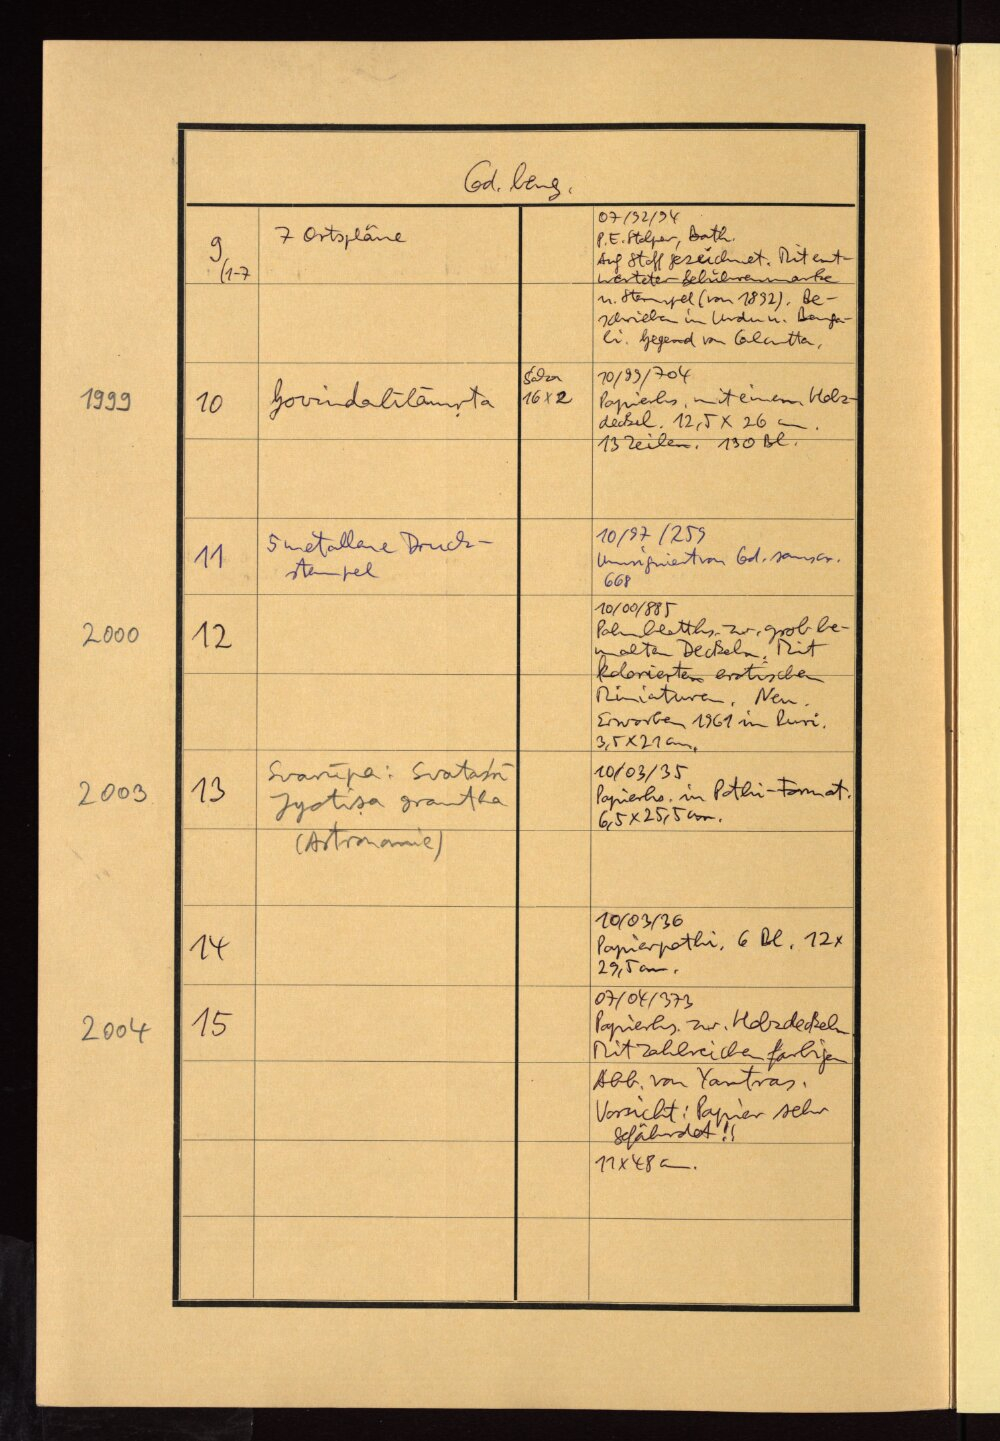 Cod. beng.
9
(1-7
7 Ortspläne
07/92/94
P.E. Stolper, Bath.
Auf Stoff gezeichnet. Mit ent-
werteter Gebührenmarke
u. Stempel (von 1892). Be-
schrieben in Urdu u. Benga-
li. Gegend von Calcutta.
1999
10
Govindalīlāmṛta
Śāka
16 x 2
10/99/704
Papierhs. mit einem Holz-
deckel. 12,5 x 26 cm.
13 Zeilen. 130 Bl.
11
5 metallene Druck-
stempel
10/97/259
Umsigniert von Cod. sanscr.
668
2000
12
10/00/885
Palmbletths. zw. grob be-
malten Deckeln. Mit
kolorierten erotischen
Miniaturen. Neu.
Erworben 1961 in Puri.
3,5 x 21 cm.
2003
13
Svarūpa:
Jyotiṣa grantha
(Astronomie)
10/03/35
Papierhs. in Pothi-Format.
6,5 x 25,5 cm.
14
10/03/36
Papierpothi. 6 Bl. 12 x
29,5 cm.
2004
15
07/04/373
Papierhs. zw. Holzdeckeln
Mit zahlreichen farbigen
Abb. von Yantras.
Vorsicht: Papier sehr
gefährdet!!
11 x 48 cm.